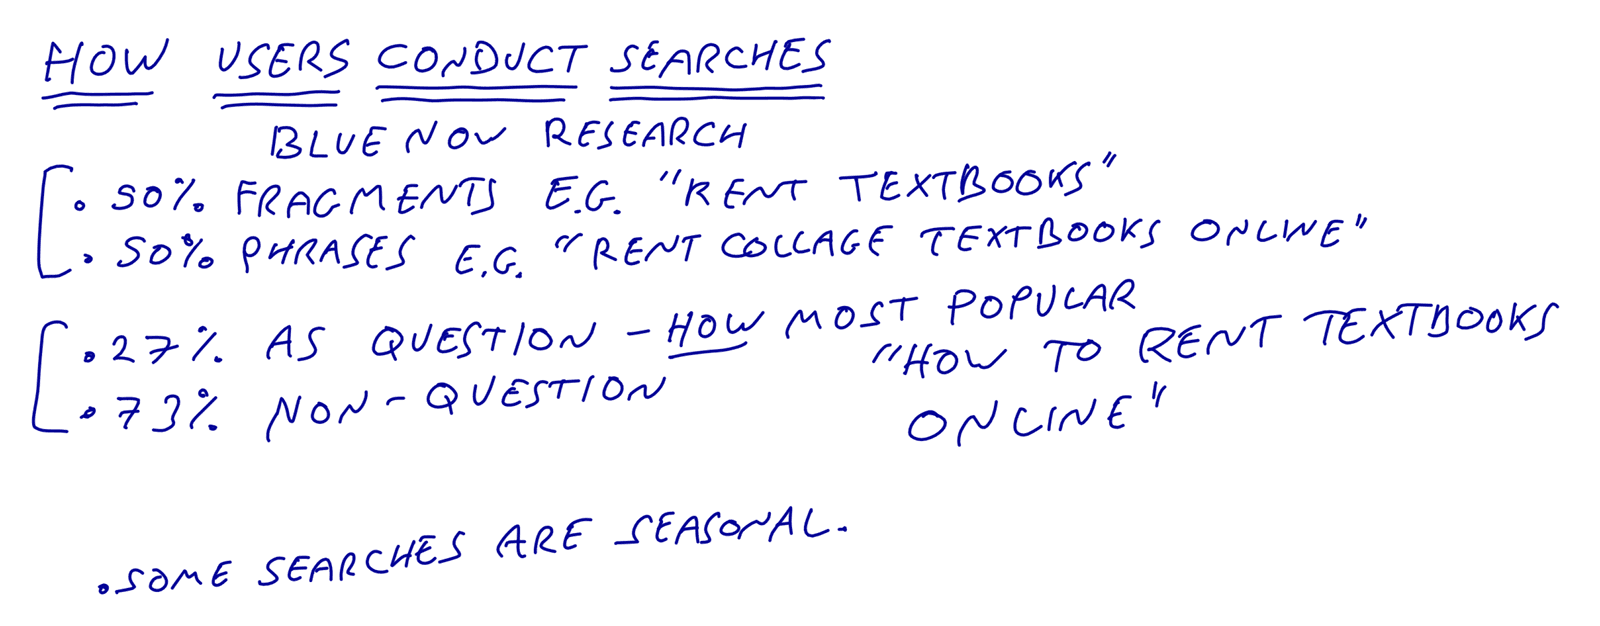 HOW USERS CONDUCT SEARCHES
BLUE NOW RESEARCH
. 50% FRAGMENTS E.G. "RENT TEXTBOOKS"
. 50% PHRASES E.G. "RENT COLLAGE TEXTBOOKS ONLINE"
. 27% AS QUESTION - HOW MOST POPULAR
"HOW TO RENT TEXTBOOKS
. 73% NON-QUESTION
ONLINE"
. SOME SEARCHES ARE SEASONAL.